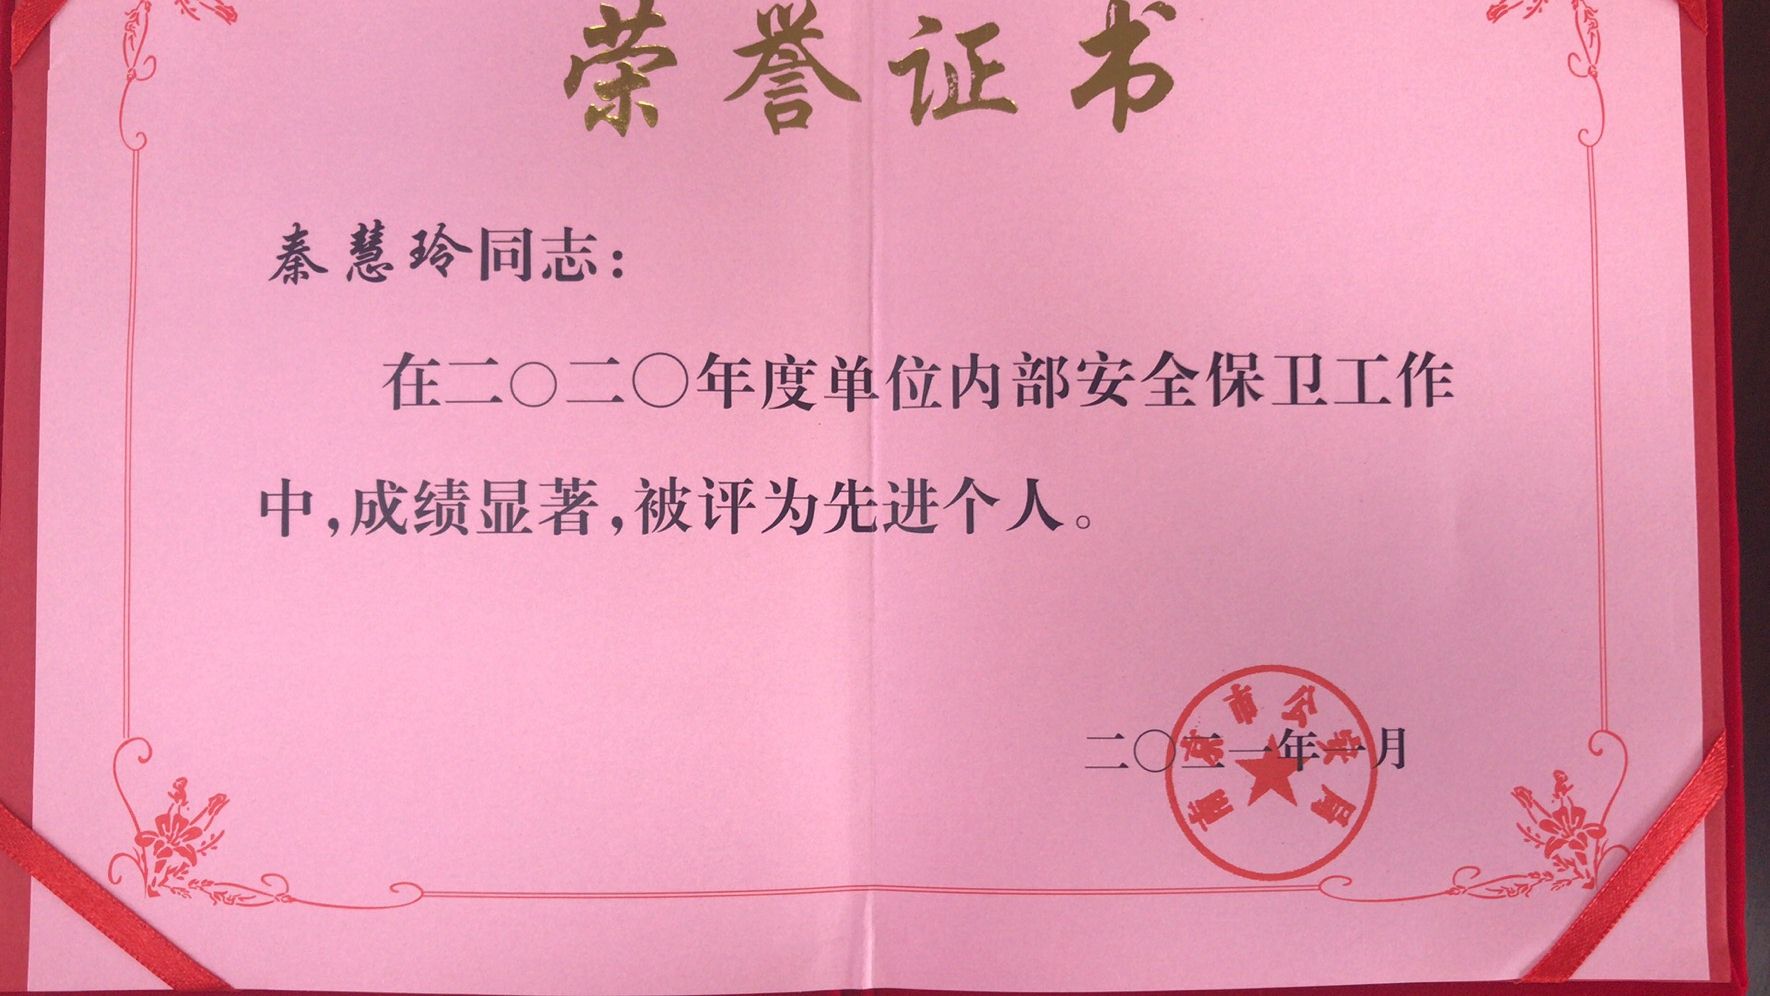 荣誉证书
秦慧玲同志：
在二〇二〇年度单位内部安全保卫工作
中，成绩显著，被评为先进个人。
二〇二一年一月
南京市公安局